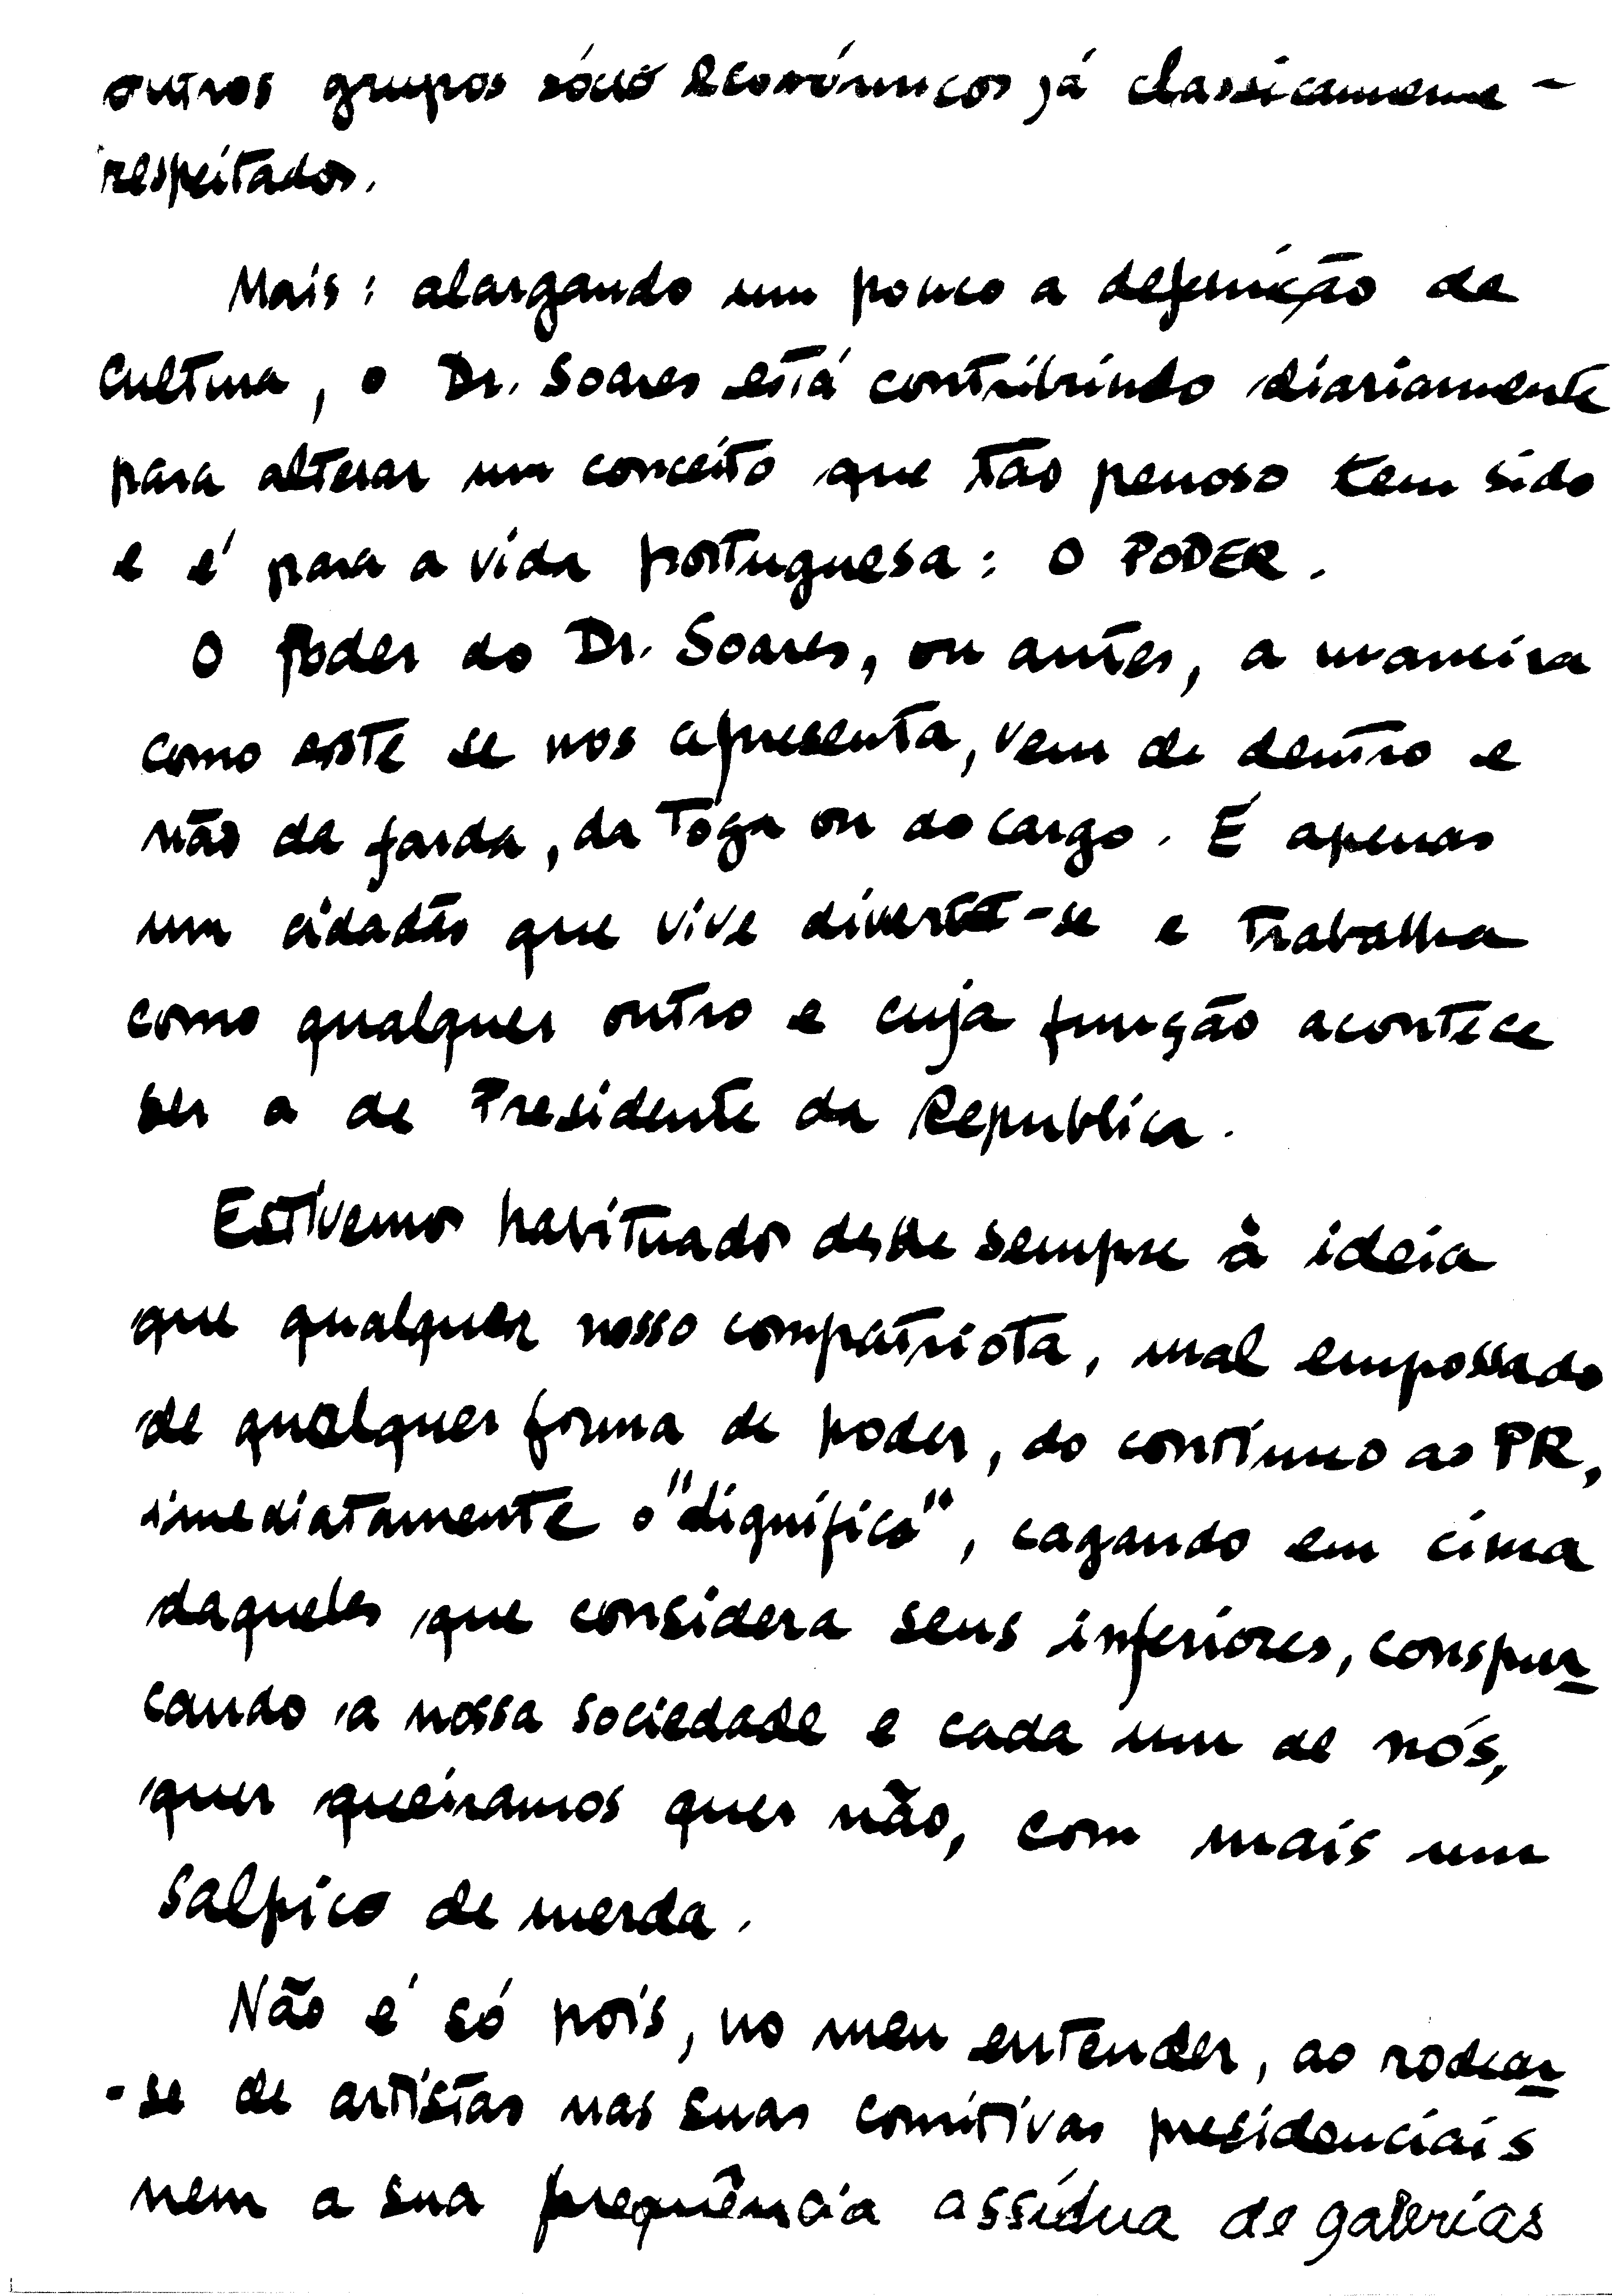 outros grupos sócio económicos já classicamente -
respeitados.
Mais: alargando um pouco a definição de
Cultura, o Dr. Soares está contribuindo diariamente
para alterar um conceito que tão penoso tem sido
e é para a vida portuguesa: O PODER.
O Poder do Dr. Soares, ou antes, a maneira
como este se nos apresenta, vem de dentro e
não da farda, da Toga ou do cargo. É apenas
um cidadão que vive diverte-se e trabalha
como qualquer outro e cuja função acontece
ser a de Presidente da Republica.
Estivemos habituados desde sempre à ideia
que qualquer nosso compatriota, mal empossado
de qualquer forma de poder, do contínuo ao PR,
imediatamente o "dignifica", cagando em cima
daqueles que considera seus inferiores, conspur-
cando a nossa sociedade e cada um de nós,
quer queiramos quer não, com mais um
salpico de merda.
Não é só pois, no meu entender, ao rodear-
-se de artistas nas suas comitivas presidenciais
nem a sua frequência assídua de galerias